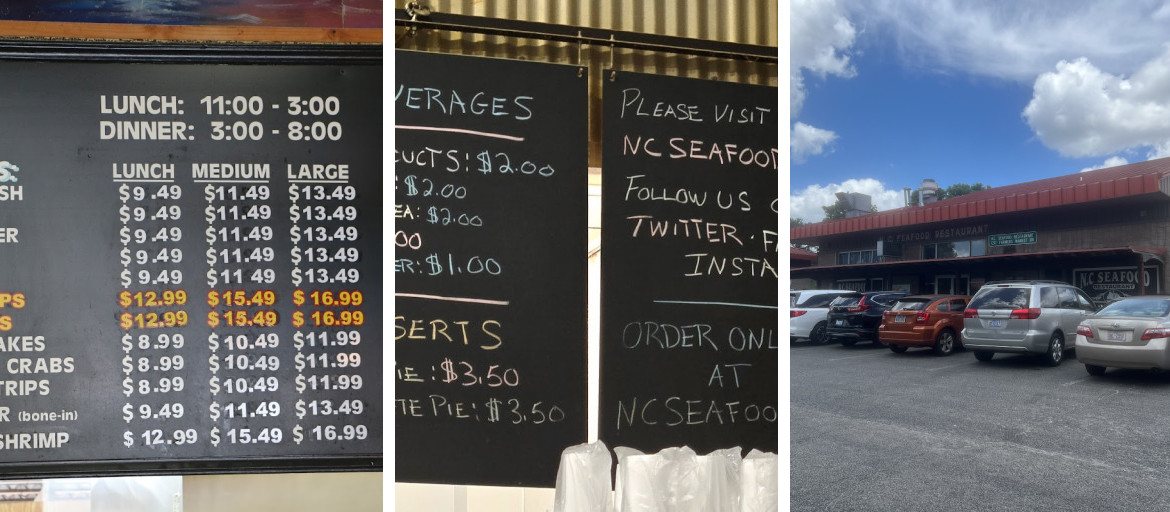 LUNCH: 11:00 - 3:00
DINNER: 3:00 - 8:00
LUNCH MEDIUM LARGE
S:
SH $9.49 $11.49 $13.49
$9.49 $11.49 $13.49
ER $9.49 $11.49 $13.49
$9.49 $11.49 $13.49
$9.49 $11.49 $13.49
PS $12.99 $15.49 $16.99
S $12.99 $15.49 $16.99
AKES $8.99 $10.49 $11.99
CRABS $8.99 $10.49 $11.99
TRIPS $8.99 $10.49 $11.99
R (bone-in) $9.49 $11.49 $13.49
SHRIMP $12.99 $15.49 $16.99
VERAGES
UCTS: $2.00
: $2.00
EA: $2.00
00
ER: $1.00
SERTS
IE: $3.50
TE PIE: $3.50
PLEASE VISIT
NC SEAFOO
FOLLOW US
TWITTER · F
INSTA
ORDER ONL
AT
NCSEAFOO
SEAFOOD RESTAURANT
N.C. SEAFOOD
RESTAURANT